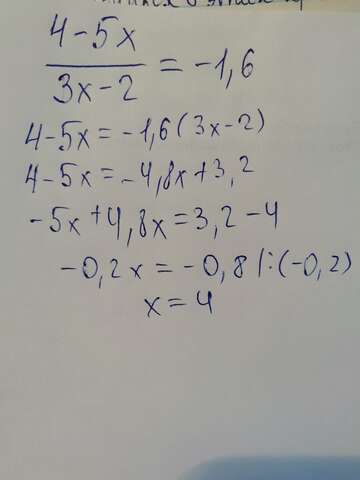 4-5x
/3x-2 = -1,6
4-5x = -1,6(3x-2)
4-5x = -4,8x+3,2
-5x+4,8x = 3,2-4
-0,2x = -0,8 /:(-0,2)
x = 4